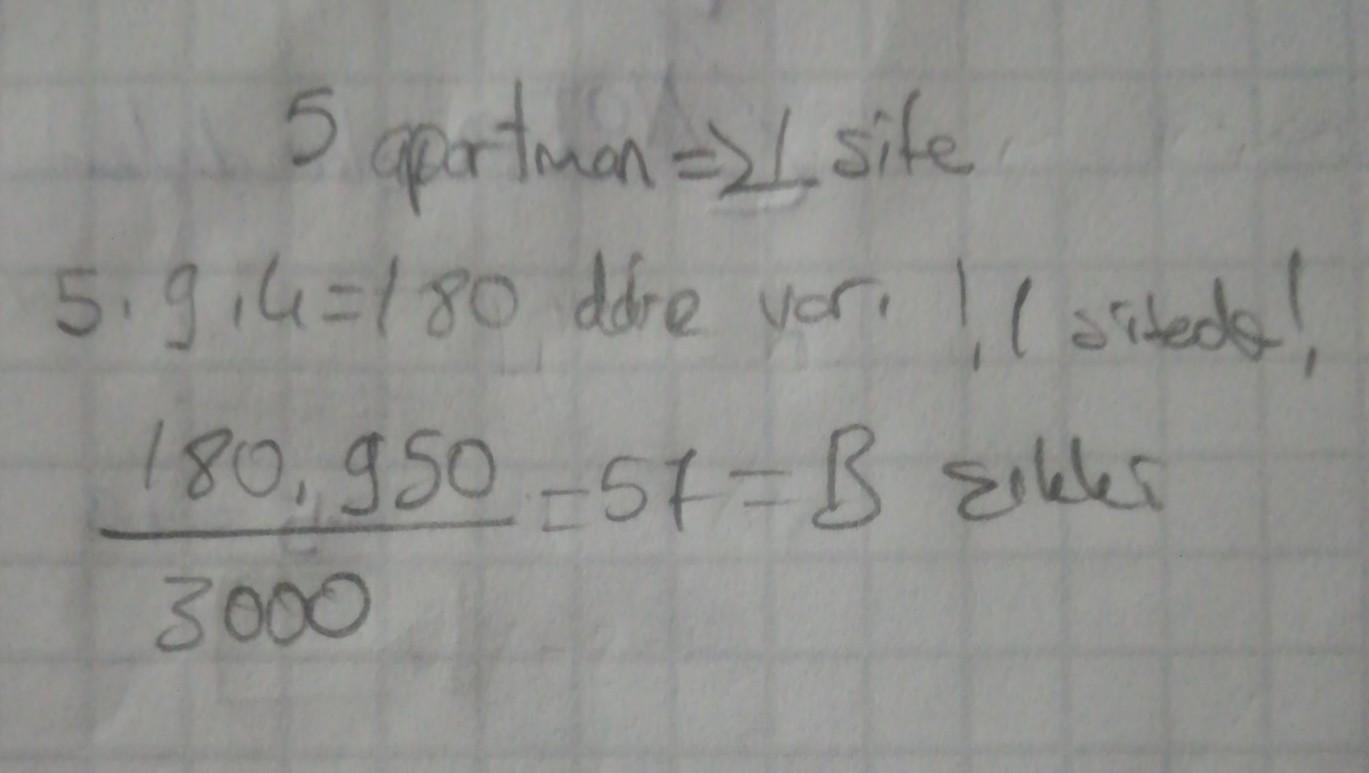 5 apartman => 1 site
5.9.4=180 daire var. !, 1 sitede!,
180.950
3000
=57= B şıkkı